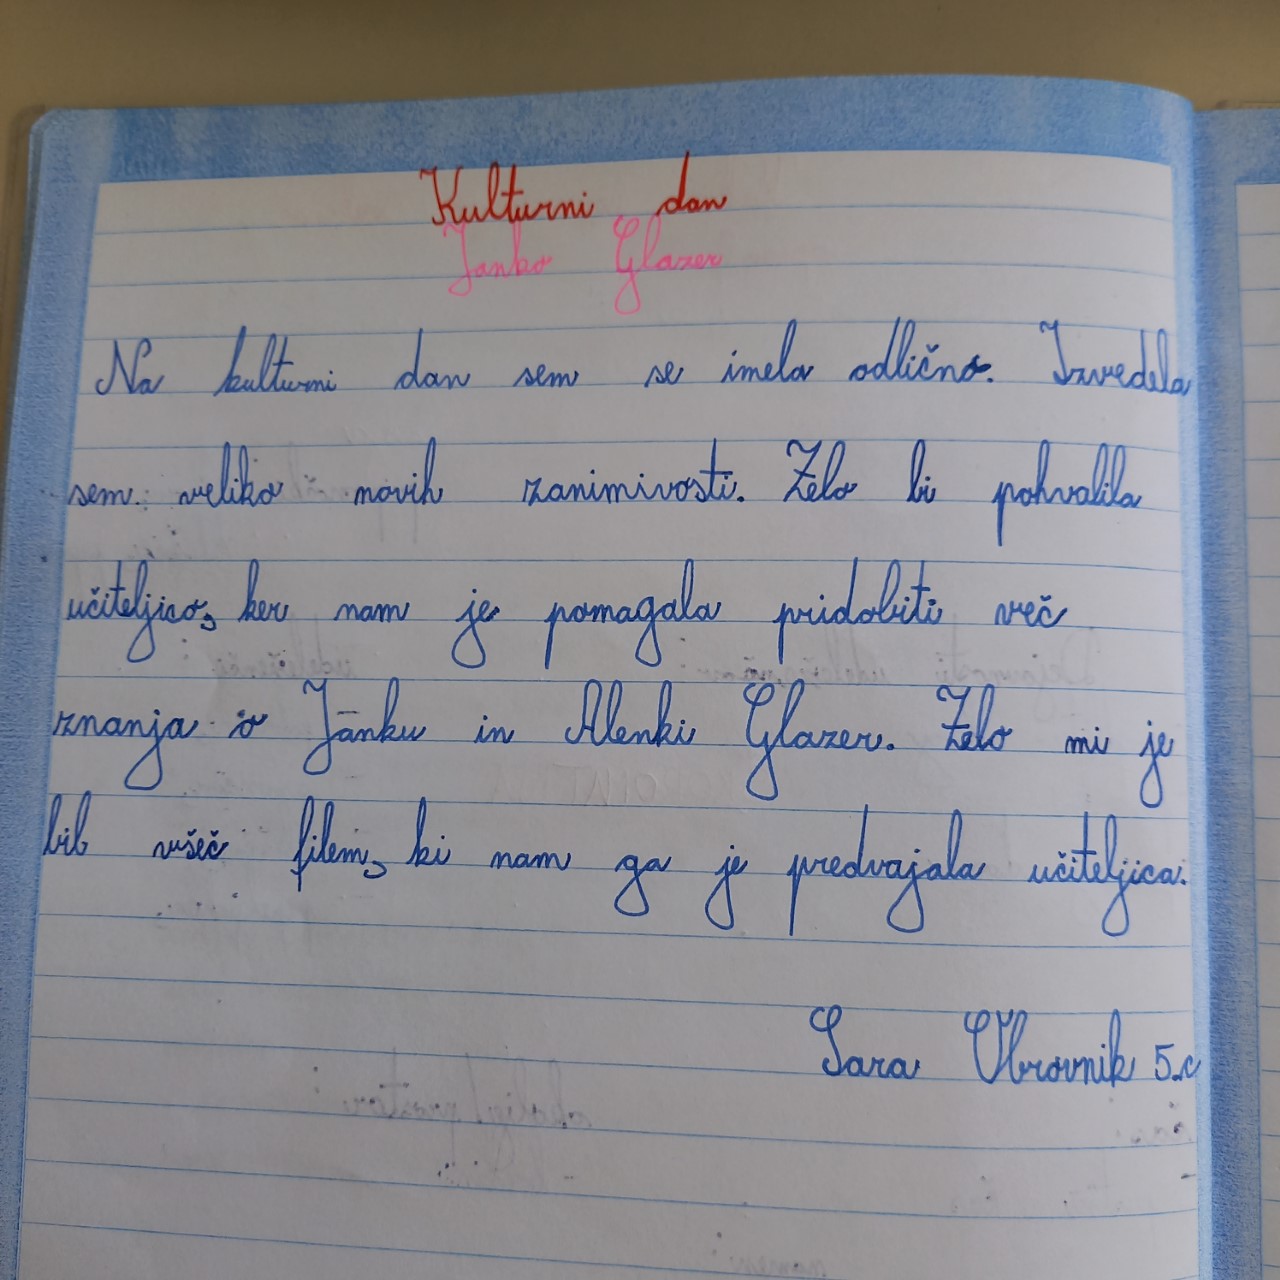 Kulturni dan
Janko Glazer
Na kulturni dan sem se imela odlično. Izvedela
sem veliko novih zanimivosti. Zelo bi pohvalila
učiteljico, ker nam je pomagala pridobiti več
znanja o Janku in Alenki Glazer. Zelo mi je
bil všeč filem, ki nam ga je predvajala učiteljica.
Sara Obrovnik 5.c